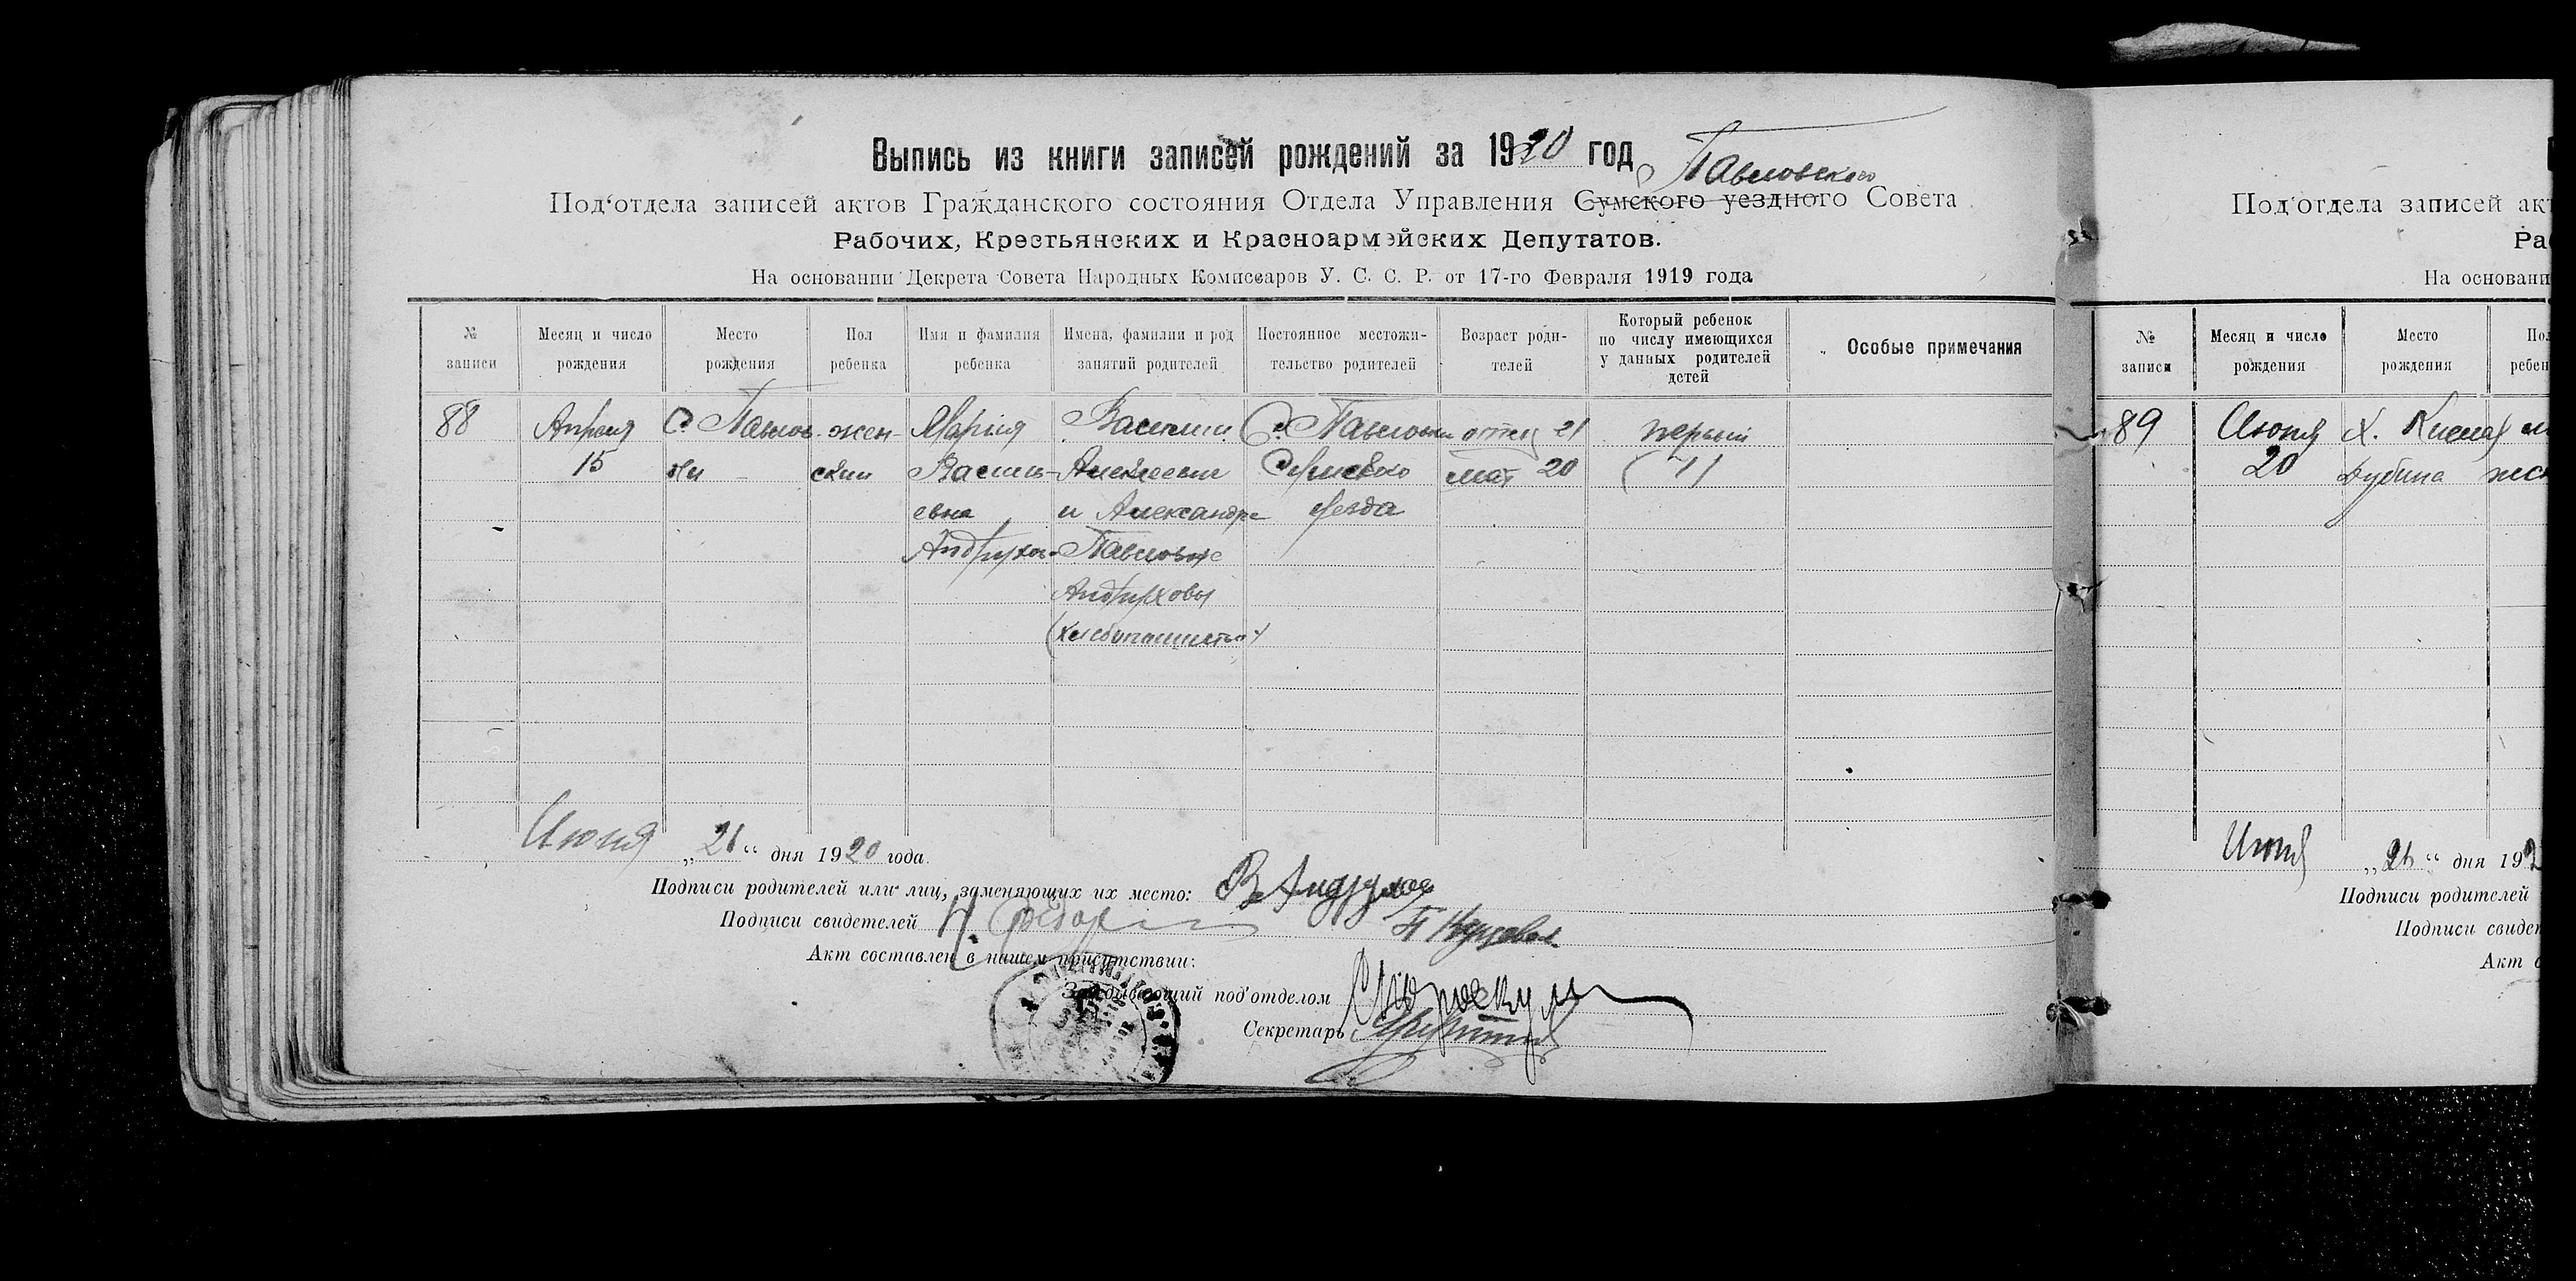 Выпись из книги записей рождений за 1920 год
Павловского
Под‘отдела записей актов Гражданского состояния Отдела Управления Сумского уездного Совета
Рабочих, Крестьянских и Красноармейских Депутатов.
На основании Декрета Совета Народных Комиссаров У. С. С. Р. от 17-го Февраля 1919 года
№ записи
Месяц и число рождения
Место рождения
Пол ребенка
Имя и фамилия ребенка
Имена, фамилии и род занятий родителей
Постоянное местожительство родителей
Возраст родителей
Который ребенок по числу имеющихся у данных родителей детей
Особые примечания
88
Апреля
15
С. Павлов-
ки
жен-
ский
Мария
Василь-
евна
Андрухов-
Василий
Алексеевич
и Александра
Павловне
Андруховы
(хлебопашество)
С. Павловки
Сумского
уезда
отец 21
мат 20
первый
(1)
Июня „21“ дня 1920 года.
Подписи родителей или лиц, заменяющих их место: В Андрухов
Подписи свидетелей
Акт составлен в нашем присутствии:
Заведывающий под‘отделом
Секретарь
Под‘отдела записей ак
Ра
На основани
№ записи
Месяц и число рождения
Место рождения
По
ребен
89
Июня
20
Х.
Дубина
Июня „26“ дня 192
Подписи родителей
Подписи свидет
Акт с